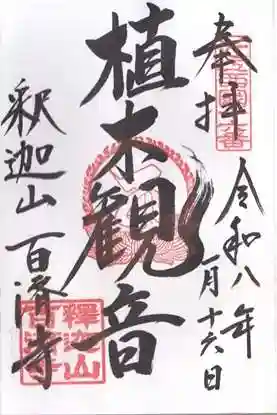 奉拝
令和八年
一月十六日
植木観音
釈迦山百済寺